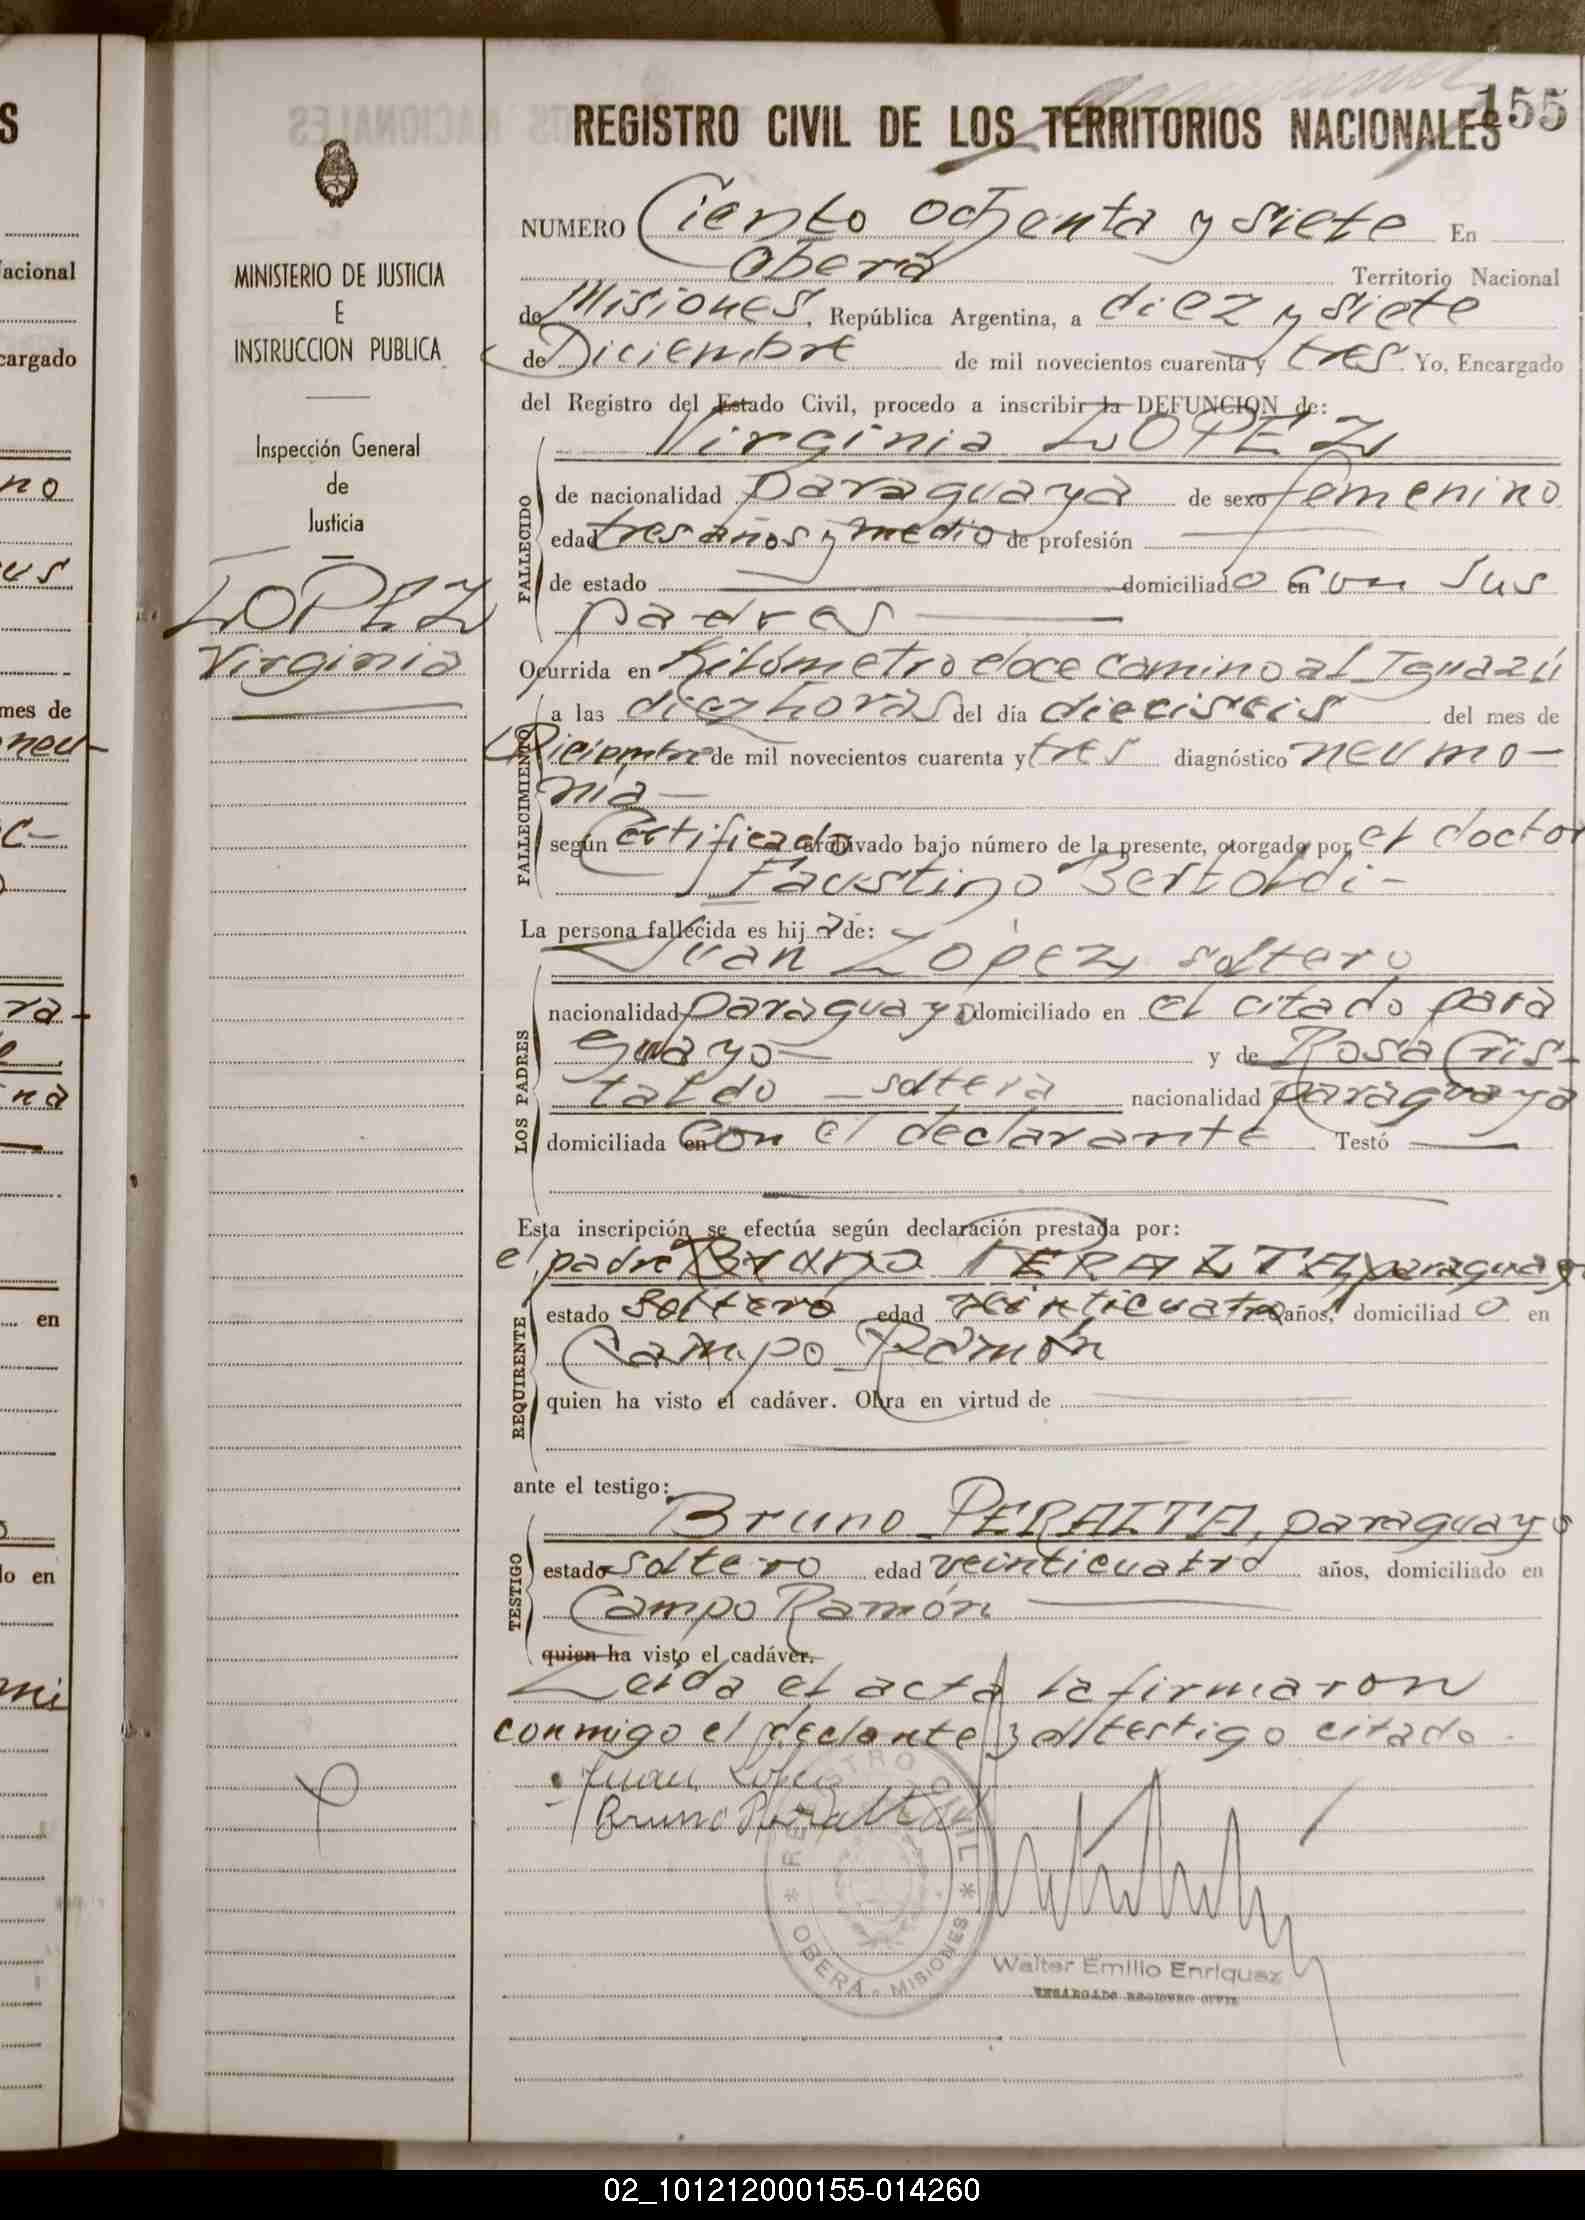 155
REGISTRO CIVIL DE LOS TERRITORIOS NACIONALES
MINISTERIO DE JUSTICIA
E
INSTRUCCION PUBLICA
Inspección General
de
Justicia
LOPEZ
Virginia
NUMERO Ciento ochenta y siete En
Oberá Territorio Nacional
de Misiones, República Argentina, a diez y siete
de Diciembre de mil novecientos cuarenta y tres. Yo, Encargado
del Registro del Estado Civil, procedo a inscribir la DEFUNCION de:
Virginia LOPEZ
FALLECIDO
de nacionalidad paraguaya de sexo femenino
edad tres años y medio de profesión
de estado domiciliado en con sus
padres
Ocurrida en Kilómetro doce camino al Iguazú
FALLECIMIENTO
a las diez horas del día dieciseis del mes de
Diciembre de mil novecientos cuarenta y tres diagnóstico neumo-
nía
según Certificado archivado bajo número de la presente, otorgado por el doctor
Faustino Bertoldi-
La persona fallecida es hija de:
Juan López, soltero
LOS PADRES
nacionalidad paraguayo domiciliado en el citado para
guayo y de Rosa Cris-
taldo - soltera nacionalidad paraguaya
domiciliada en con el declarante Testó
Esta inscripción se efectúa según declaración prestada por:
el padre Bruno PERALTA, paraguayo
REQUIRENTE
estado soltero edad veinticuatro años, domiciliado en
Campo Ramón
quien ha visto el cadáver. Obra en virtud de
ante el testigo:
Bruno PERALTA, paraguayo
TESTIGO
estado soltero edad veinticuatro años, domiciliado en
Campo Ramón
quien ha visto el cadáver.
Leida el acta la firmaron
conmigo el declante y el testigo citado.
Juan López
Bruno Peralta
REGISTRO CIVIL * OBERÁ - MISIONES *
Walter Emilio Enriquez
ENCARGADO REGISTRO CIVIL
02_101212000155-014260